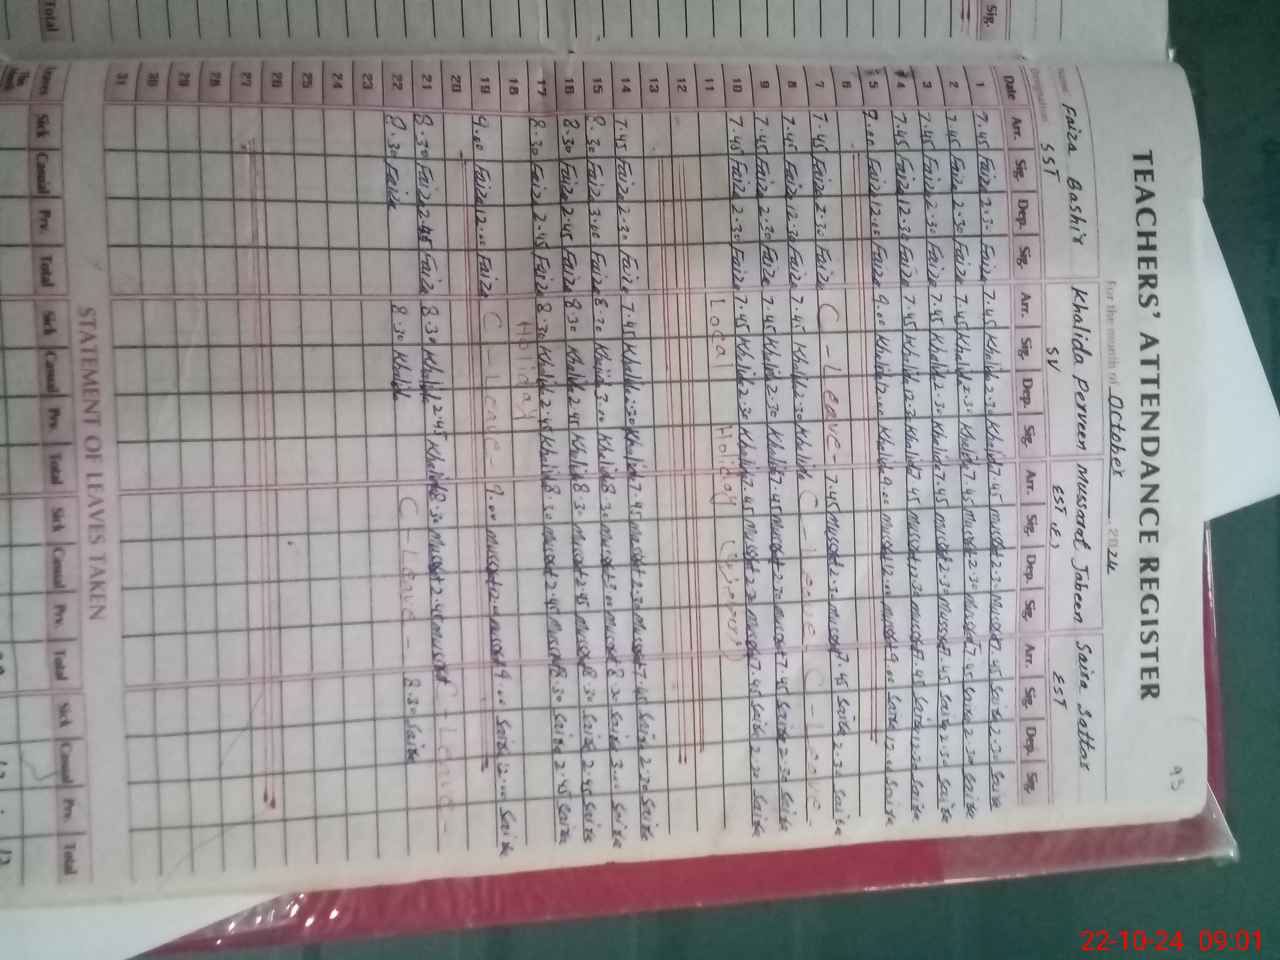 93
TEACHERS' ATTENDANCE REGISTER
For the month of October 2024
Name Faiza Bashir Khalida Perveen Mussarat Jabeen Saira Sattar
Designation SST SV EST (E) EST
Date Arr. Sig. Dep. Sig. Arr. Sig. Dep. Sig. Arr. Sig. Dep. Sig. Arr. Sig. Dep. Sig.
1 7.45 Faiza 2.30 Faiza 7.45 Khalida 2.30 Khalida 7.45 Mussarat 2.30 Mussarat 7.45 Saira 2.30 Saira
2 7.45 Faiza 2.30 Faiza 7.45 Khalida 2.30 Khalida 7.45 Mussarat 2.30 Mussarat 7.45 Saira 2.30 Saira
3 7.45 Faiza 2.30 Faiza 7.45 Khalida 2.30 Khalida 7.45 Mussarat 2.30 Mussarat 7.45 Saira 2.30 Saira
4 7.45 Faiza 12.30 Faiza 7.45 Khalida 12.30 Khalida 7.45 Mussarat 12.30 Mussarat 7.45 Saira 12.30 Saira
5 9.00 Faiza 12.00 Faiza 9.00 Khalida 12.00 Khalida 9.00 Mussarat 12.00 Mussarat 9.00 Saira 12.00 Saira
6
7 7.45 Faiza 2.30 Faiza C - Leave - 7.45 Mussarat 2.30 Mussarat 7.45 Saira 2.30 Saira
8 7.45 Faiza 2.30 Faiza 7.45 Khalida 2.30 Khalida C - Leave - C - Leave -
9 7.45 Faiza 2.30 Faiza 7.45 Khalida 2.30 Khalida 7.45 Mussarat 2.30 Mussarat 7.45 Saira 2.30 Saira
10 7.45 Faiza 2.30 Faiza 7.45 Khalida 2.30 Khalida 7.45 Mussarat 2.30 Mussarat 7.45 Saira 2.30 Saira
11 Local Holiday
12
13
14 7.45 Faiza 2.30 Faiza 7.45 Khalida 2.30 Khalida 7.45 Mussarat 2.30 Mussarat 7.45 Saira 2.30 Saira
15 8.30 Faiza 3.00 Faiza 8.30 Khalida 3.00 Khalida 8.30 Mussarat 3.00 Mussarat 8.30 Saira 3.00 Saira
16 8.30 Faiza 2.45 Faiza 8.30 Khalida 2.45 Khalida 8.30 Mussarat 2.45 Mussarat 8.30 Saira 2.45 Saira
17 8.30 Faiza 2.45 Faiza 8.30 Khalida 2.45 Khalida 8.30 Mussarat 2.45 Mussarat 8.30 Saira 2.45 Saira
18 Holiday
19 9.00 Faiza 12.00 Faiza C - Leave - 9.00 Mussarat 12.00 Mussarat 9.00 Saira 12.00 Saira
20
21 8.30 Faiza 2.45 Faiza 8.30 Khalida 2.45 Khalida 8.30 Mussarat 2.45 Mussarat C - Leave -
22 8.30 Faiza 8.30 Khalida C Leave - 8.30 Saira
23
24
25
26
27
28
29
30
31
STATEMENT OF LEAVES TAKEN
Leaves Sick Casual Prv. Total Sick Casual Prv. Total Sick Casual Prv. Total Sick Casual Prv. Total
Total
Sig.
22-10-24 09:01